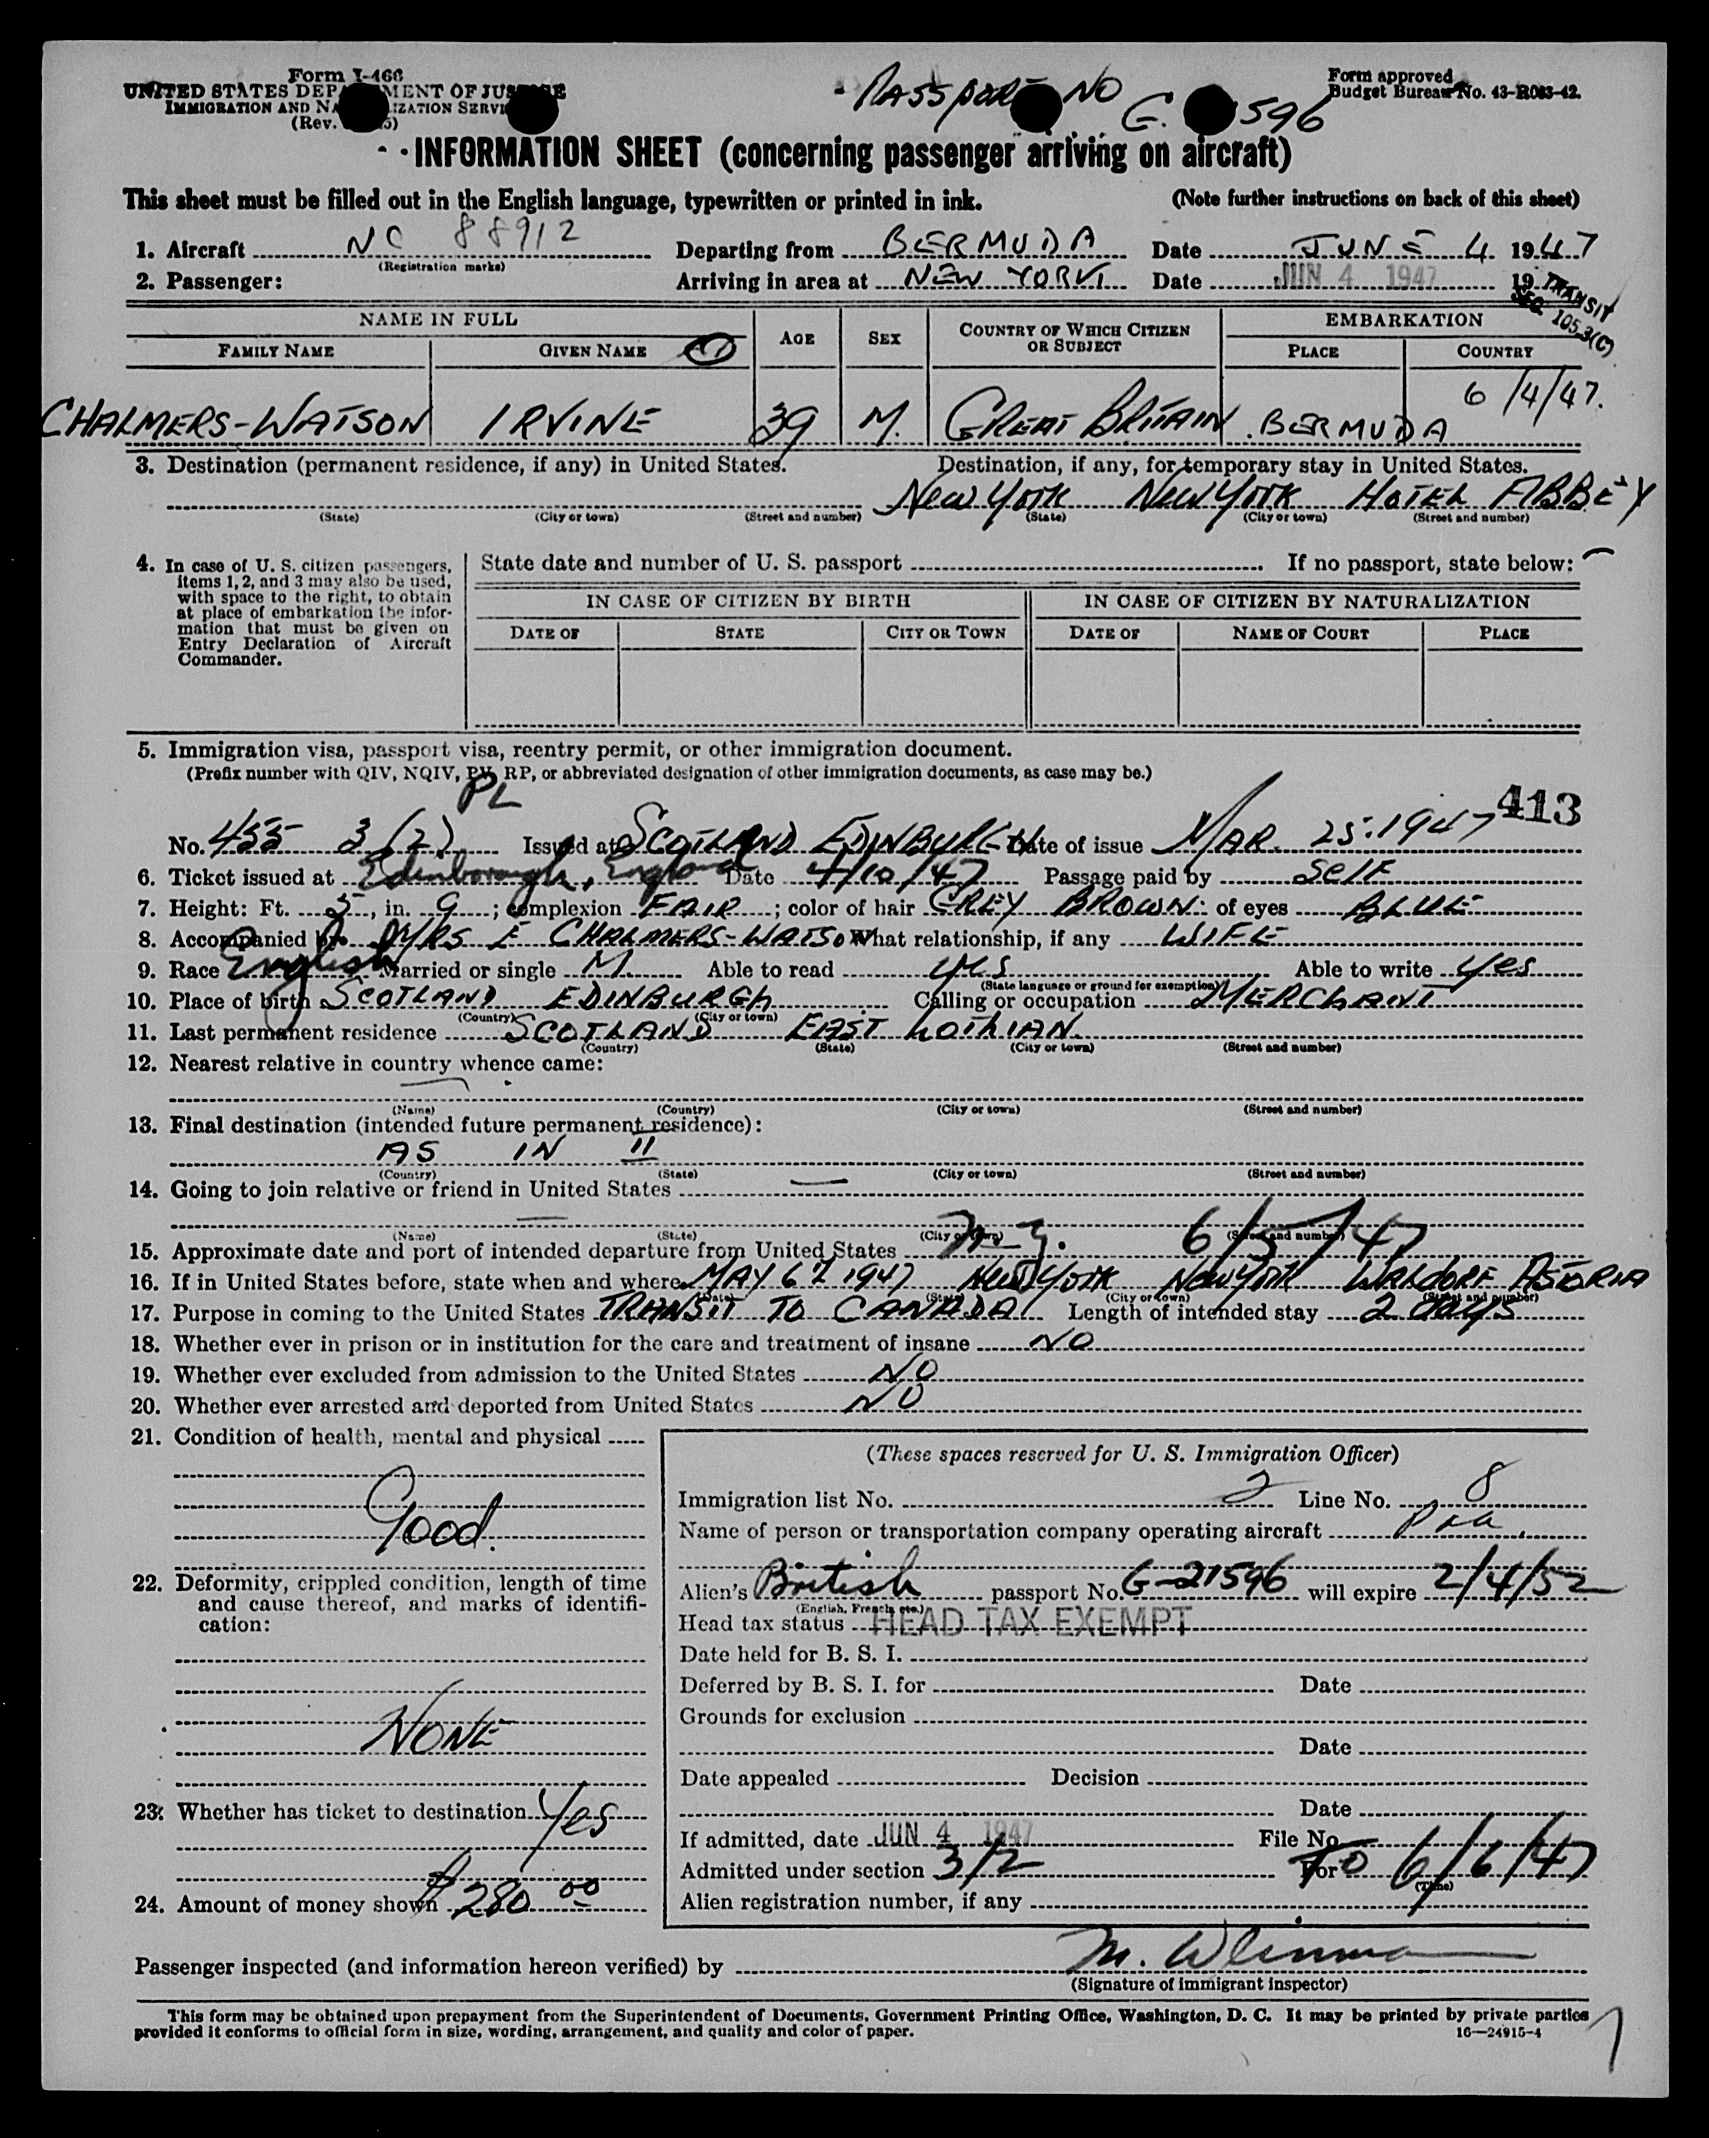 Form I-466
UNITED STATES DEPARTMENT OF JUSTICE
IMMIGRATION AND NATURALIZATION SERVICE
(Rev. 5)
PASSPORT NO G. 596
Form approved
Budget Bureau No. 43-R083-42.
INFORMATION SHEET (concerning passenger arriving on aircraft)
This sheet must be filled out in the English language, typewritten or printed in ink. (Note further instructions on back of this sheet)
1. Aircraft NC 88912 Departing from BERMUDA Date JUNE 4 1947
(Registration marks)
2. Passenger: Arriving in area at NEW YORK Date JUN 4 1947 19
TRANSIT
SEC. 105.3(C)
NAME IN FULL AGE SEX COUNTRY OF WHICH CITIZEN OR SUBJECT EMBARKATION
FAMILY NAME GIVEN NAME PLACE COUNTRY
6/4/47.
CHALMERS-WATSON IRVINE 39 M. GREAT BRITAIN BERMUDA
3. Destination (permanent residence, if any) in United States. Destination, if any, for temporary stay in United States.
New York New York HOTEL ABBEY
(State) (City or town) (Street and number) (State) (City or town) (Street and number)
4. In case of U. S. citizen passengers, items 1, 2, and 3 may also be used, with space to the right, to obtain at place of embarkation the information that must be given on Entry Declaration of Aircraft Commander.
State date and number of U. S. passport If no passport, state below:
IN CASE OF CITIZEN BY BIRTH IN CASE OF CITIZEN BY NATURALIZATION
DATE OF STATE CITY OR TOWN DATE OF NAME OF COURT PLACE
5. Immigration visa, passport visa, reentry permit, or other immigration document.
(Prefix number with QIV, NQIV, PV, RP, or abbreviated designation of other immigration documents, as case may be.)
PL
413
No. 455 3(2) Issued at SCOTLAND EDINBURGH Date of issue MAR. 25. 1947
6. Ticket issued at Edinborough, England Date 4/10/47 Passage paid by Self
7. Height: Ft. 5, in. 9; complexion FAIR; color of hair GREY BROWN: of eyes BLUE
8. Accompanied by MRS E CHALMERS-WATSON What relationship, if any WIFE
9. Race English Married or single M. Able to read yes Able to write yes
(State language or ground for exemption)
10. Place of birth SCOTLAND EDINBURGH Calling or occupation MERCHANT
(Country) (City or town)
11. Last permanent residence SCOTLAND EAST LOTHIAN.
(Country) (State) (City or town) (Street and number)
12. Nearest relative in country whence came:
(Name) (Country) (City or town) (Street and number)
13. Final destination (intended future permanent residence):
AS IN 11
(Country) (State) (City or town) (Street and number)
14. Going to join relative or friend in United States
(Name) (State) (City or town) (Street and number)
15. Approximate date and port of intended departure from United States N.Y. 6/5/47
16. If in United States before, state when and where MAY 6th 1947 New York New York WALDORF ASTORIA
(Date) (State) (City or town) (Street and number)
17. Purpose in coming to the United States TRANSIT TO CANADA Length of intended stay 2 days
18. Whether ever in prison or in institution for the care and treatment of insane NO
19. Whether ever excluded from admission to the United States NO
20. Whether ever arrested and deported from United States NO
21. Condition of health, mental and physical
Good.
22. Deformity, crippled condition, length of time and cause thereof, and marks of identification:
NONE
23. Whether has ticket to destination Yes
24. Amount of money shown $280.00
(These spaces reserved for U. S. Immigration Officer)
Immigration list No. 2 Line No. 8
Name of person or transportation company operating aircraft Paa.
Alien's British passport No. G-21596 will expire 2/4/52
(English, French, etc.)
Head tax status HEAD TAX EXEMPT
Date held for B. S. I.
Deferred by B. S. I. for Date
Grounds for exclusion
Date
Date appealed Decision
Date
If admitted, date JUN 4 1947 File No.
Admitted under section 3/2 For TO 6/6/47
(Time)
Alien registration number, if any
Passenger inspected (and information hereon verified) by
(Signature of immigrant inspector)
This form may be obtained upon prepayment from the Superintendent of Documents, Government Printing Office, Washington, D. C. It may be printed by private parties
provided it conforms to official form in size, wording, arrangement, and quality and color of paper. 16—24915-4